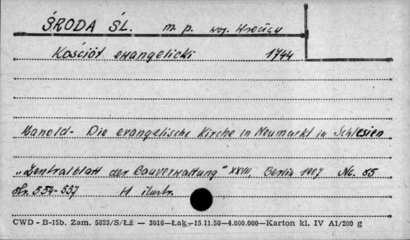 ŚRODA ŚL. m. p. woj. Wrocław
Kościół ewangelicki 1744
Hanold- Die evangelische Kirche in Neumarkt in Schlesien
„Zentralblatt der Bauverwaltung" XXVII, Berlin 1907 No. 85
str. 554-557 11 ilustr.
CWD - B-15b. Zam. 5823/S/Łż — 3016—Łąk.—15.11.50—4.000.000—Karton kl. IV A1/200 g